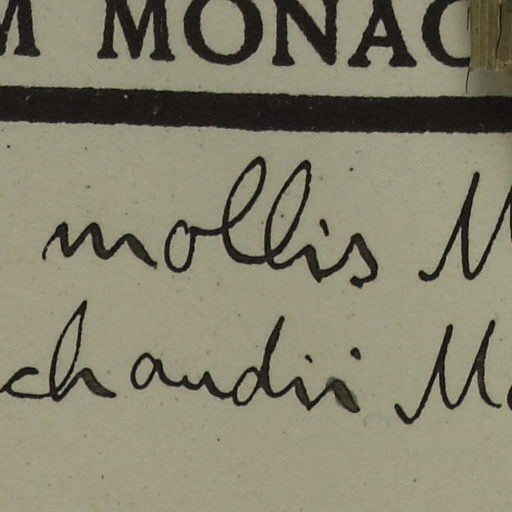 M MONAC
mollis M
chandii Ma